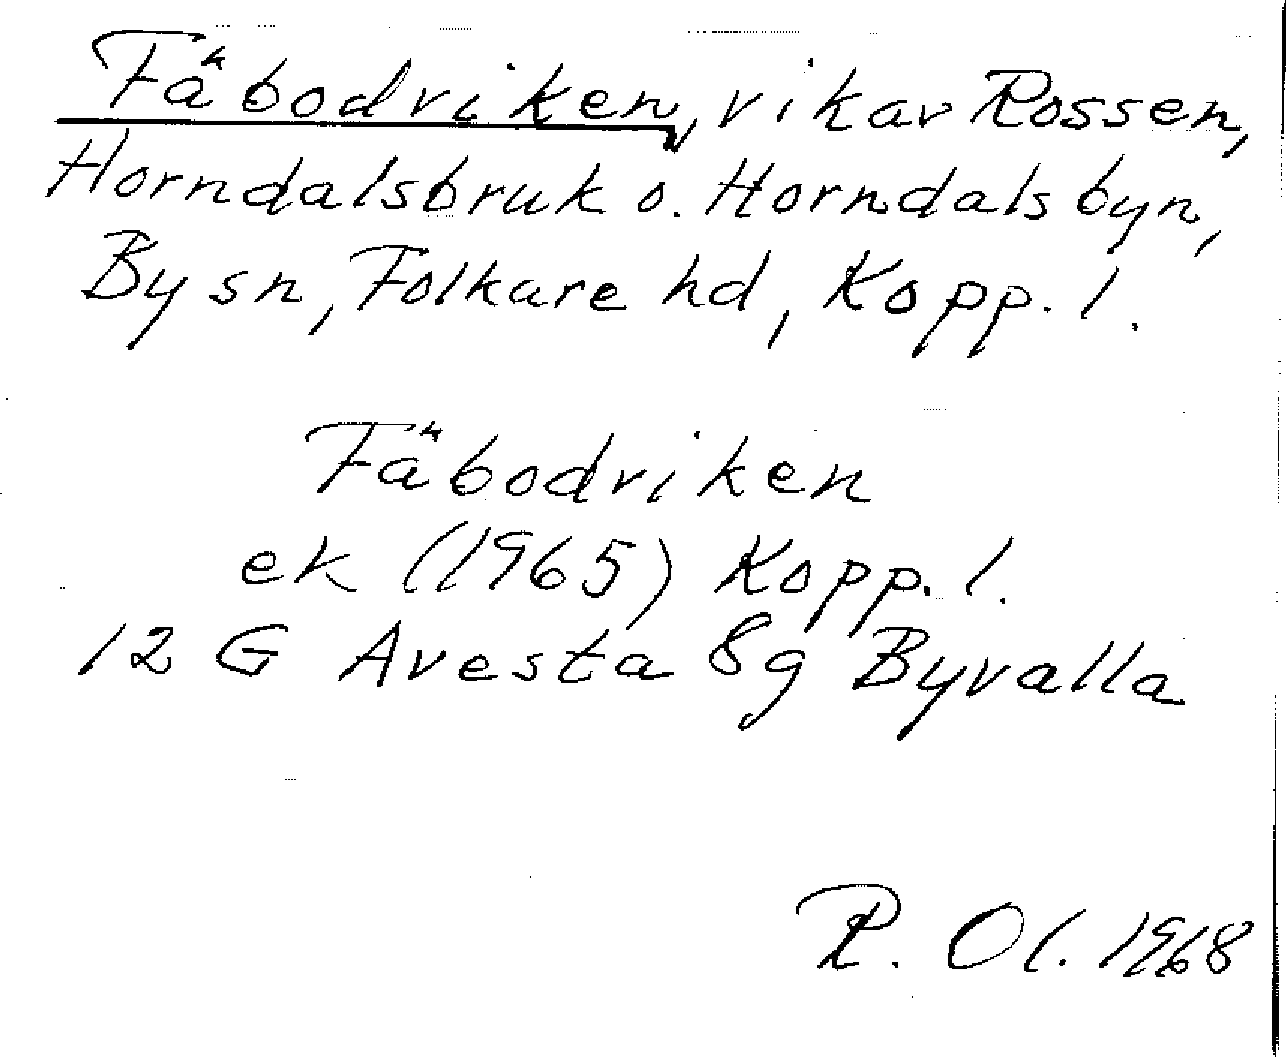 Fäbodviken, vik av Rossen,
Horndalsbruk o. Horndalsbyn,
By sn, Folkare hd, Kopp. l.
Fäbodviken
ek (1965) Kopp. l.
12 G Avesta 8g Byvalla
R. Ol. 1968